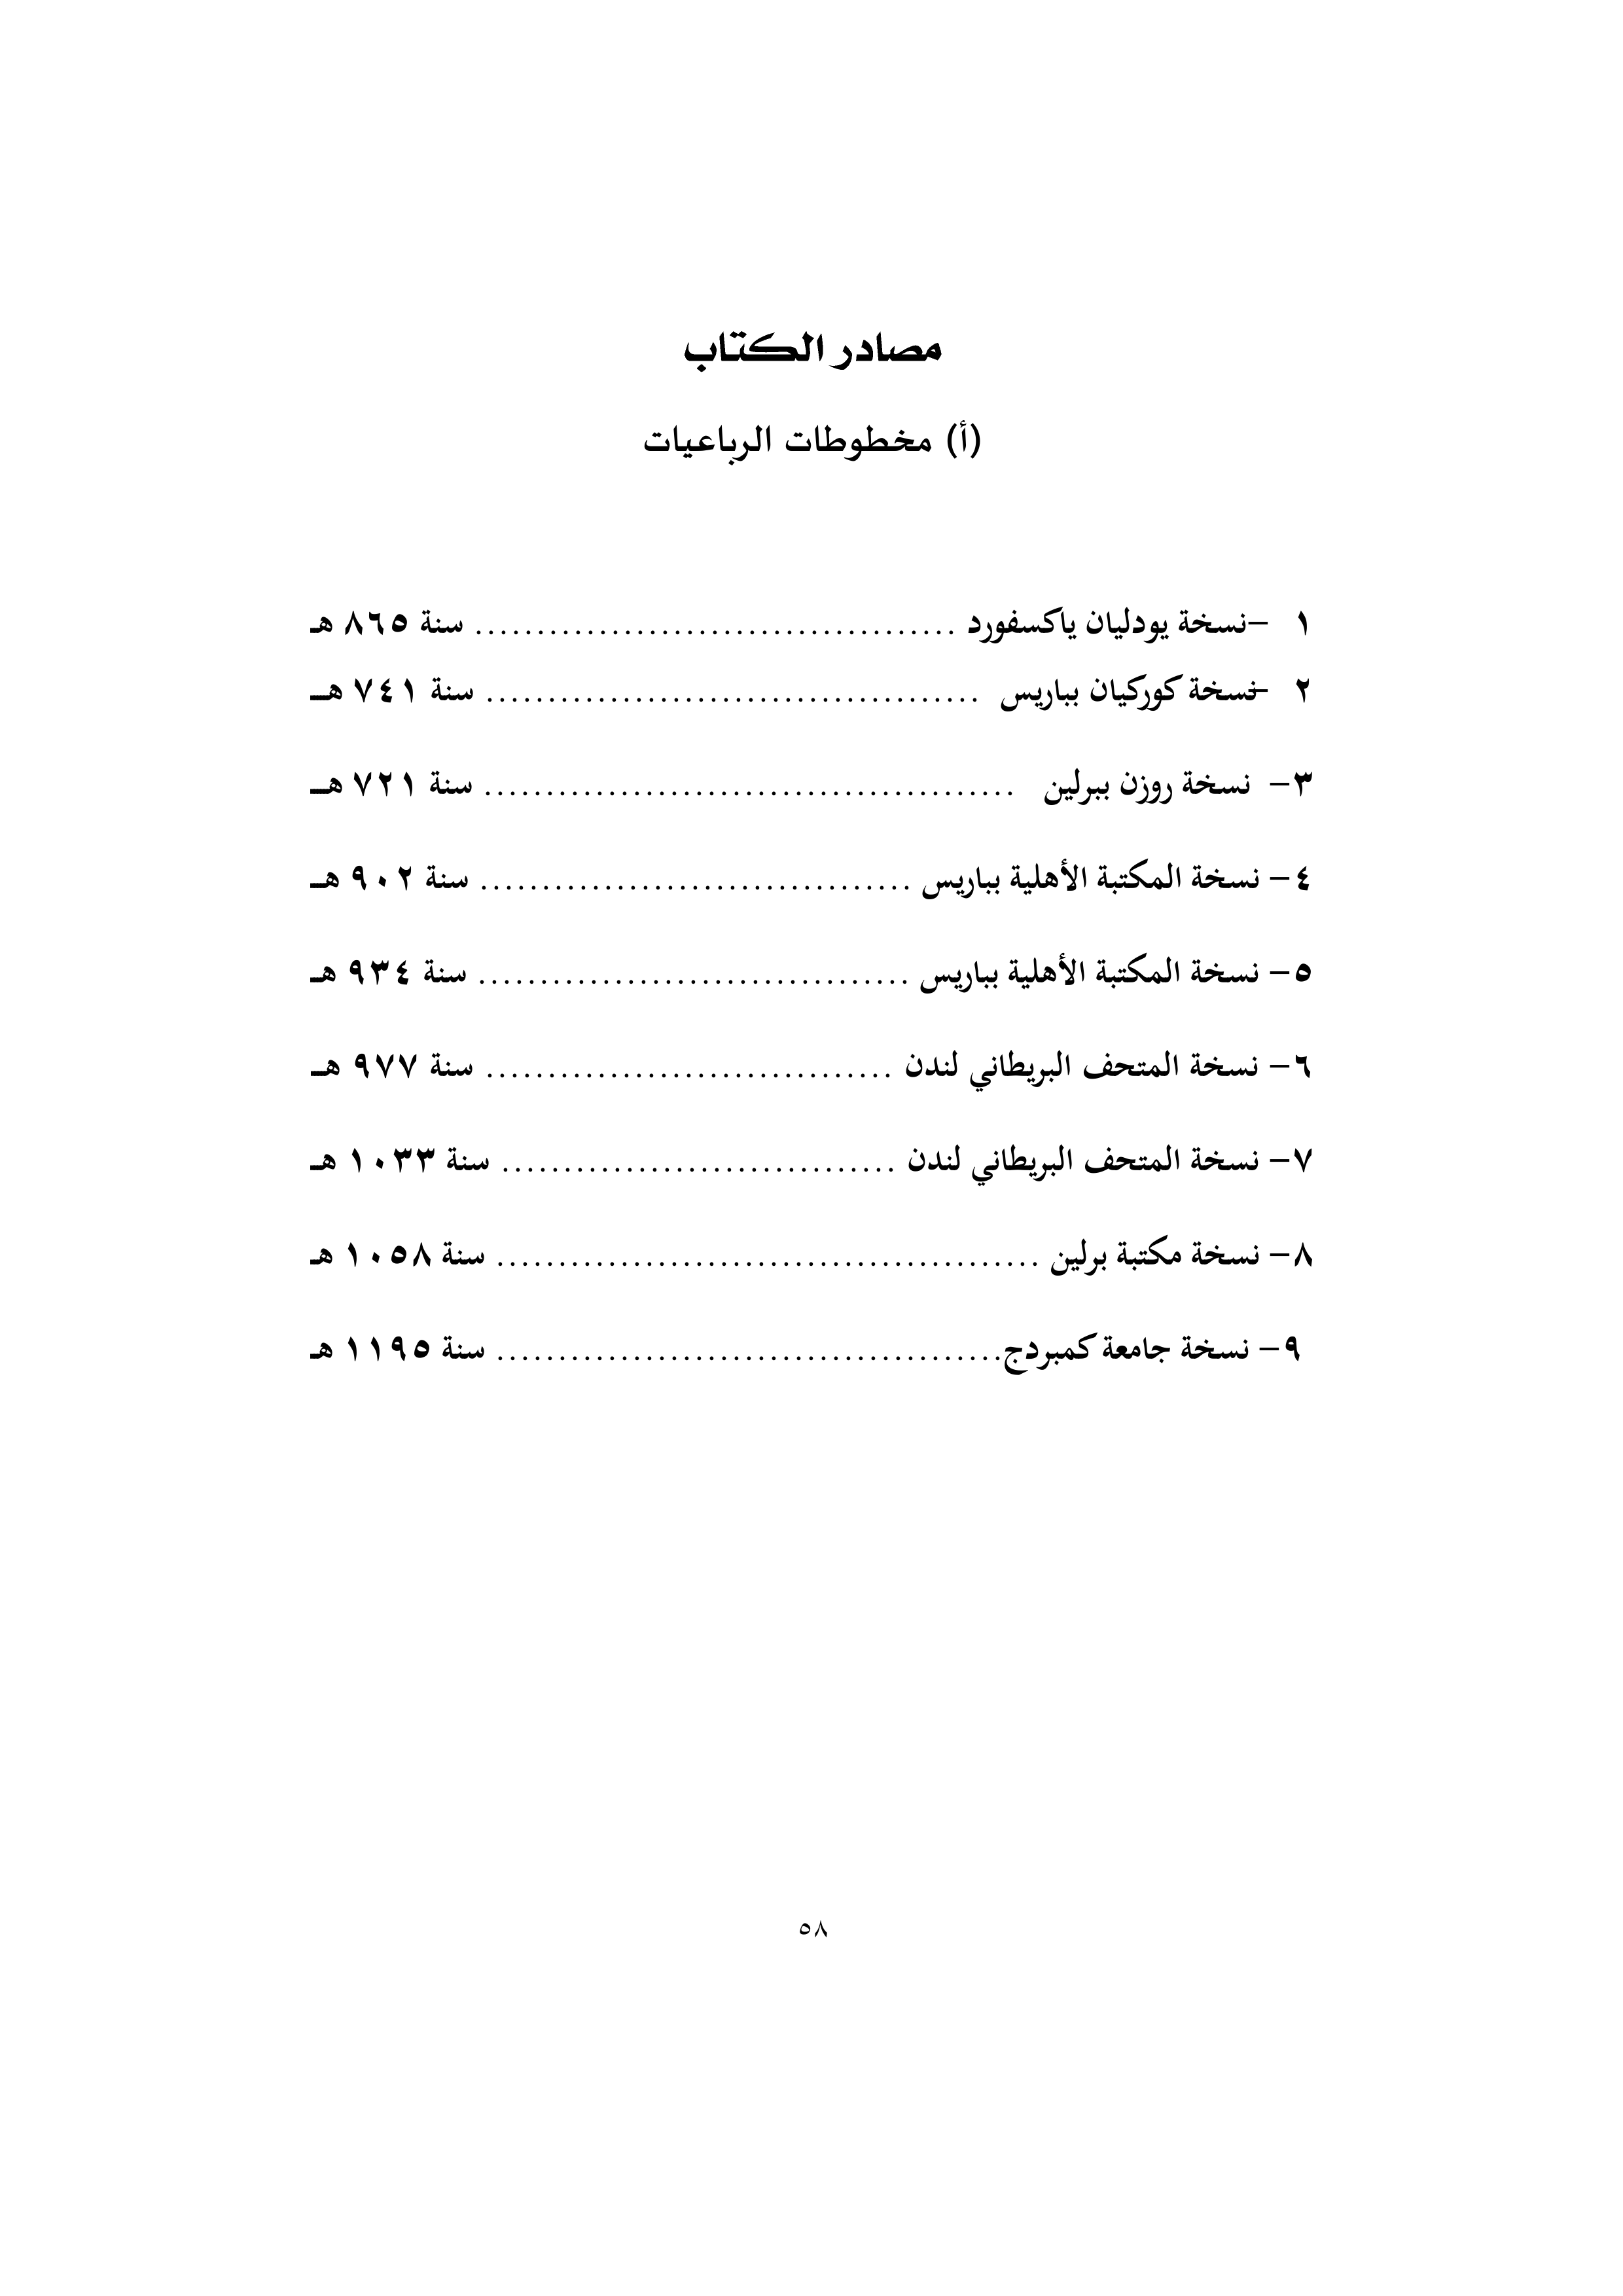 مصادر الكتاب
(أ) مخطوطات الرباعيات
١ –نسخة يودليان ياكسفورد ....................................... سنة ٨٦٥ هـ
٢ –نسخة كوركيان بباريس ........................................ سنة ٧٤١ هـ
٣– نسخة روزن ببرلين ........................................... سنة ٧٢١ هـ
٤– نسخة المكتبة الأهلية بباريس ................................... سنة ٩٠٢ هـ
٥– نسخة المكتبة الأهلية بباريس ................................... سنة ٩٣٤ هـ
٦– نسخة المتحف البريطاني لندن ................................. سنة ٩٧٧ هـ
٧– نسخة المتحف البريطاني لندن ................................ سنة ١٠٣٣ هـ
٨– نسخة مكتبة برلين ............................................ سنة ١٠٥٨ هـ
٩– نسخة جامعة كمبردج......................................... سنة ١١٩٥ هـ
٥٨